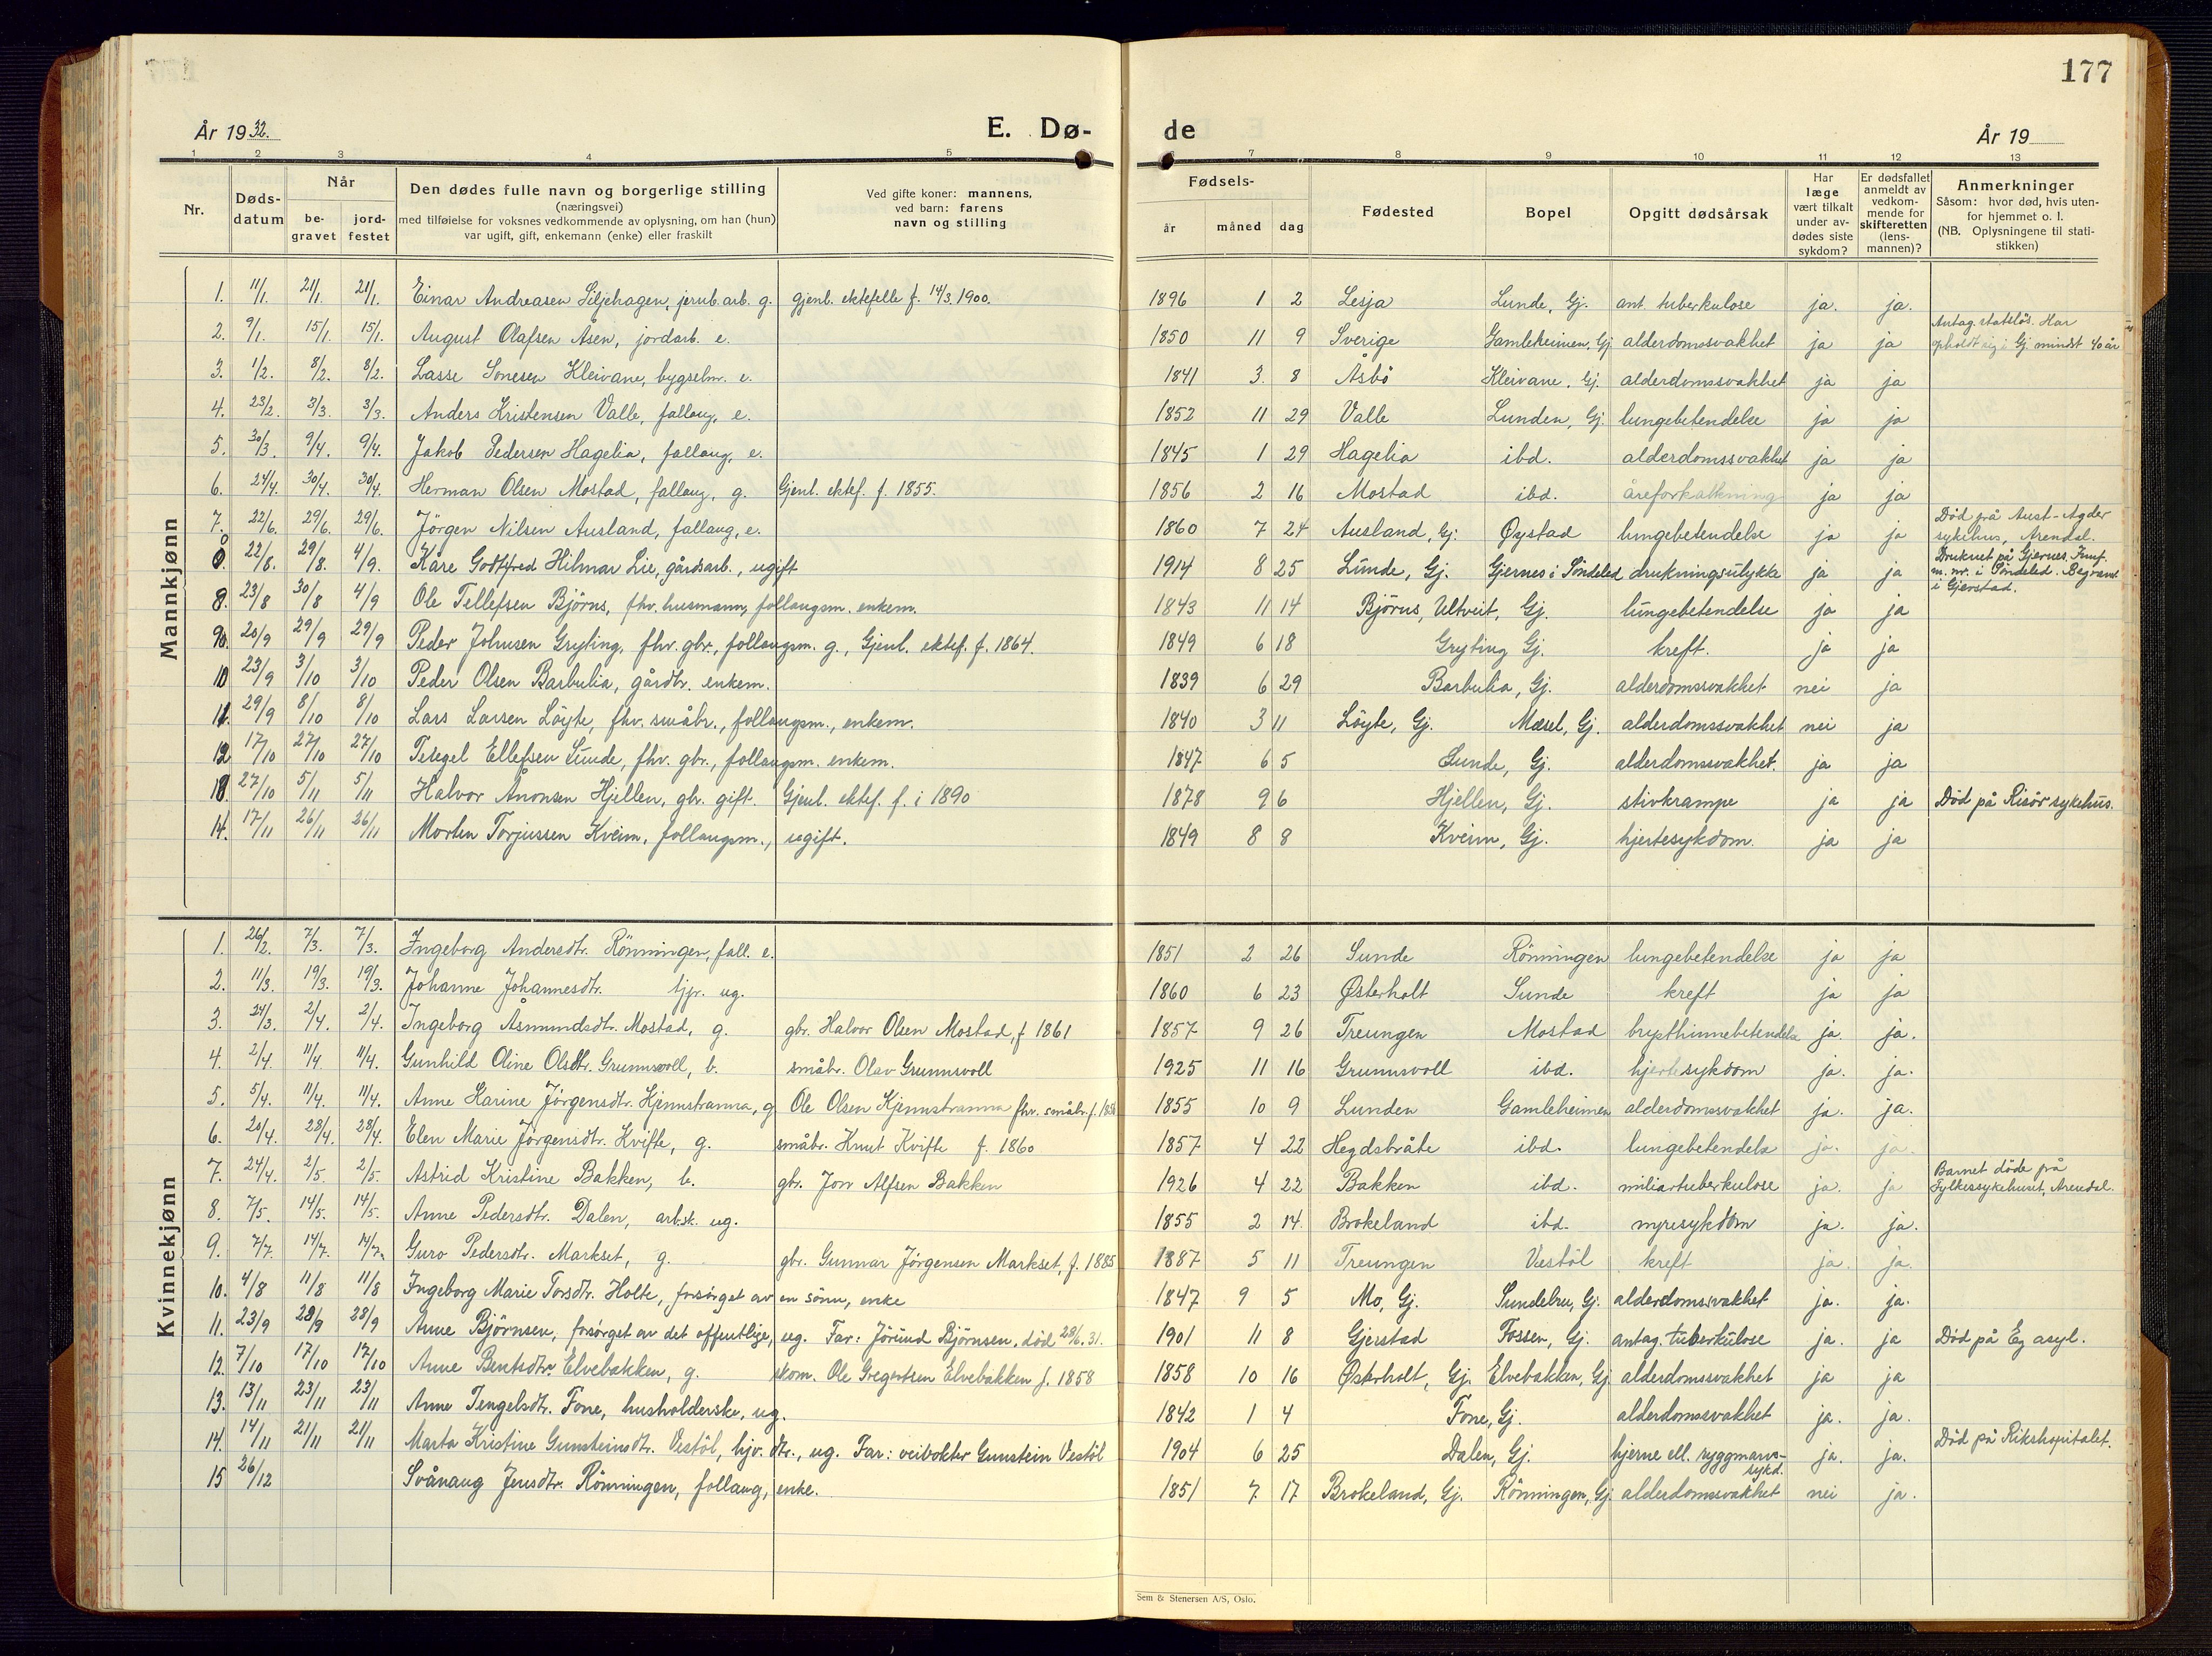 177
År 1932.
E. Dø-
de
År 19
1 2 3 4 5 6 7 8 9 10 11 12 13
Nr.
Døds-
datum
Når
be-
gravet
jord-
festet
Den dødes fulle navn og borgerlige stilling
(næringsvei)
med tilføielse for voksnes vedkommende av oplysning, om han (hun)
var ugift, gift, enkemann (enke) eller fraskilt
Ved gifte koner: mannens,
ved barn: farens
navn og stilling
Fødsels-
år måned dag
Fødested
Bopel
Opgitt dødsårsak
Har
læge
vært tilkalt
under av-
dødes siste
sykdom?
Er dødsfallet
anmeldt av
vedkom-
mende for
skifteretten
(lens-
mannen)?
Anmerkninger
Såsom: hvor død, hvis uten-
for hjemmet o. l.
(NB. Oplysningene til stati-
stikken)
Mannkjønn
1. 11/1. 21/1. 21/1. Einar Andreasen Siljehagen, jernb. arb. g. gjenl. ektefelle f. 14/3 1900. 1896 1 2 Lesja Lunde, Gj. ant. tuberkulose ja. ja.
2. 9/1. 15/1. 15/1. August Olafsen Åsen, jordarb. e. 1850 11 9 Sverige Gamleheimen, Gj alderdomssvakhet ja ja Antag. statsløs. Har
opholdt sig i Gj. mindst 40 år
3. 1/2. 8/2. 8/2. Lasse Sonesen Kleivane, bygselm. e. 1841 3. 8 Åsbö Kleivane, Gj. alderdomssvakhet ja ja
4. 23/2. 3/3. 3/3. Anders Kristensen Valle, fallaug, e. 1852 11 29 Valle Lunden, Gj. lungebetendelse ja ja
5. 30/3. 9/4. 9/4. Jakob Pedersen Hagelia, fallaug, e. 1845 1 29 Hagelia ibd. alderdomssvakhet ja ja
6. 24/4. 30/4. 30/4. Herman Olsen Mostad, fallaug, g. Gjenl. ektef. f. 1855. 1856 2 16 Mostad ibd. åreforkalkning ja ja
7. 22/6. 29/6. 29/6. Jörgen Nilsen Ausland, fallaug, e. 1860 7 24 Ausland, Gj. Øystad lungebetendelse ja ja Död på Aust-Agder
sykehus, Arendal.
8. 22/8. 29/8. 4/9. Kåre Godtfred Hilmar Lie, gårdsarb., ugift 1914 8 25 Lunde, Gj. Gjernes i Söndeled drukningsulykke ja ja Druknet på Gjernes
m. m. i Söndeled. Begravet
i Gjerstad.
8. 23/8 30/8 4/9 Ole Tellefsen Björns, fhv. husmann, follaugsm. enkem. 1843 11 14 Björns, Ultveit, Gj. lungebetendelse ja ja
9. 20/9 29/9 29/9 Peder Johnsen Gryting, fhv. gbr., follaugsm. g., Gjenl. ektef. f. 1864. 1849 6 18 Gryting Gj. kreft. ja ja
10 23/9 3/10 3/10 Peder Olsen Barbulia, gårdbr. enkem. 1839 6 29 Barbulia, Gj. alderdomssvakhet nei ja
11. 29/9 8/10 8/10 Lars Larsen Löyte, fhv. småbr., follaugsm., enkem. 1840 3 11 Löyte, Gj. Mæsel, Gj. alderdomssvakhet nei ja
12 17/10 27/10 27/10 Teiegel Ellefsen Sunde, fhv. gbr., follaugsm. enkem. 1847 6 5 Sunde, Gj. alderdomssvakhet. ja ja
13. 27/10 5/11 5/11 Halvor Ånonsen Hjellen, gbr. gift. Gjenl. ektef. f. i 1890 1878 9 6 Hjellen, Gj. stivkrampe ja ja Död på Risör sykehus.
14. 17/11 26/11 26/11 Morten Torjussen Kveim, follaugsm., ugift. 1849 8 8 Kveim, Gj. hjertesykdom. ja ja
Kvinnekjønn
1. 26/2. 7/3. 7/3. Ingeborg Andersdtr. Rönningen, fall. e. 1851 2 26 Sunde Rönningen lungebetendelse ja ja
2. 11/3. 19/3. 19/3. Johanne Johannesdtr. tjp. ug. 1860 6 23 Østerholt Sunde kreft ja ja
3. 24/3. 2/4. 2/4. Ingeborg Åsmundsdtr. Mostad, g. gbr. Halvor Olsen Mostad, f 1861 1857 9 26 Treungen Mostad brysthinnebetendelse ja. ja.
4. 2/4. 11/4 11/4. Gunhild Oline Olsdtr. Grunnsvoll, b. småbr. Olav Grunnsvoll 1925 11 16 Grunnsvoll ibd. hjertesykdom ja. ja.
5. 5/4. 11/4. 11/4. Anne Karine Jörgensdtr. Kjennstranna, g Ole Olsen Kjennstranna fhv. småbr. f. 1856 1855 10 9 Lunden Gamleheimen alderdomssvakhet ja. ja.
6. 20/4. 28/4. 28/4. Elen Marie Jörgensdtr. Kvifte, g. småbr. Knut Kvifte f. 1860 1857 4 22 Hegdsbråte ibd. lungebetendelse ja. ja.
7. 24/4. 2/5. 2/5. Astrid Kristine Bakken, b. gbr. Jon Alfsen Bakken 1926 4 22 Bakken ibd. miliartuberkulose ja. ja Barnet döde på
Fylkessykehuset, Arendal.
8. 7/5. 14/5. 14/5. Anne Pedersdtr. Dalen, arbsk. ug. 1855 2 14. Brokeland ibd. nyresykdom ja. ja.
9. 7/7. 14/7. 14/7. Guro Pedersdtr. Markset, g. gbr. Gunnar Jörgensen Markset, f. 1885 1887 5 11 Treungen Vestöl kreft ja. ja.
10. 4/8 11/8 11/8 Ingeborg Marie Torsdtr. Holte, forsörget av en sönn, enke 1847 9 5 Mo, Gj. Sundebru, Gj. alderdomssvakhet ja. ja.
11. 23/9 28/9 28/9 Anne Björnsen, forsörget av det offentlige, ug. Far: Jörund Björnsen, död 29/6. 31. 1901 11 8 Gjerstad Fossen, Gj. antag. tuberkulose ja. ja Död på Eg asyl.
12. 7/10 17/10 17/10 Anne Bentsdtr. Elvebakken, g. skom. Ole Gregertsen Elvebakken f. 1858 1858 10 16 Østerholt, Gj. Elvebakken, Gj alderdomssvakhet ja ja
13. 13/11 23/11 23/11 Anne Tengelsdtr. Fone, husholderske, ug. 1842 1 4 Fone, Gj. alderdomssvakhet ja. ja.
14. 14/11 21/11 21/11 Marta Kristine Gunsteinsdtr. Vestöl, hjv. dtr., ug. Far: veivokter Gunstein Vestöl 1904 6 25 Dalen, Gj. hjerne ell. ryggmarvs-
sykd. ja. ja. Död på Rikshospitalet.
15 26/12 Svånaug Jensdtr. Rönningen, follaug, enke. 1851 7 17 Brokeland, Gj. Rönningen, Gj alderdomssvakhet nei ja.
Sem & Stenersen A/S, Oslo.